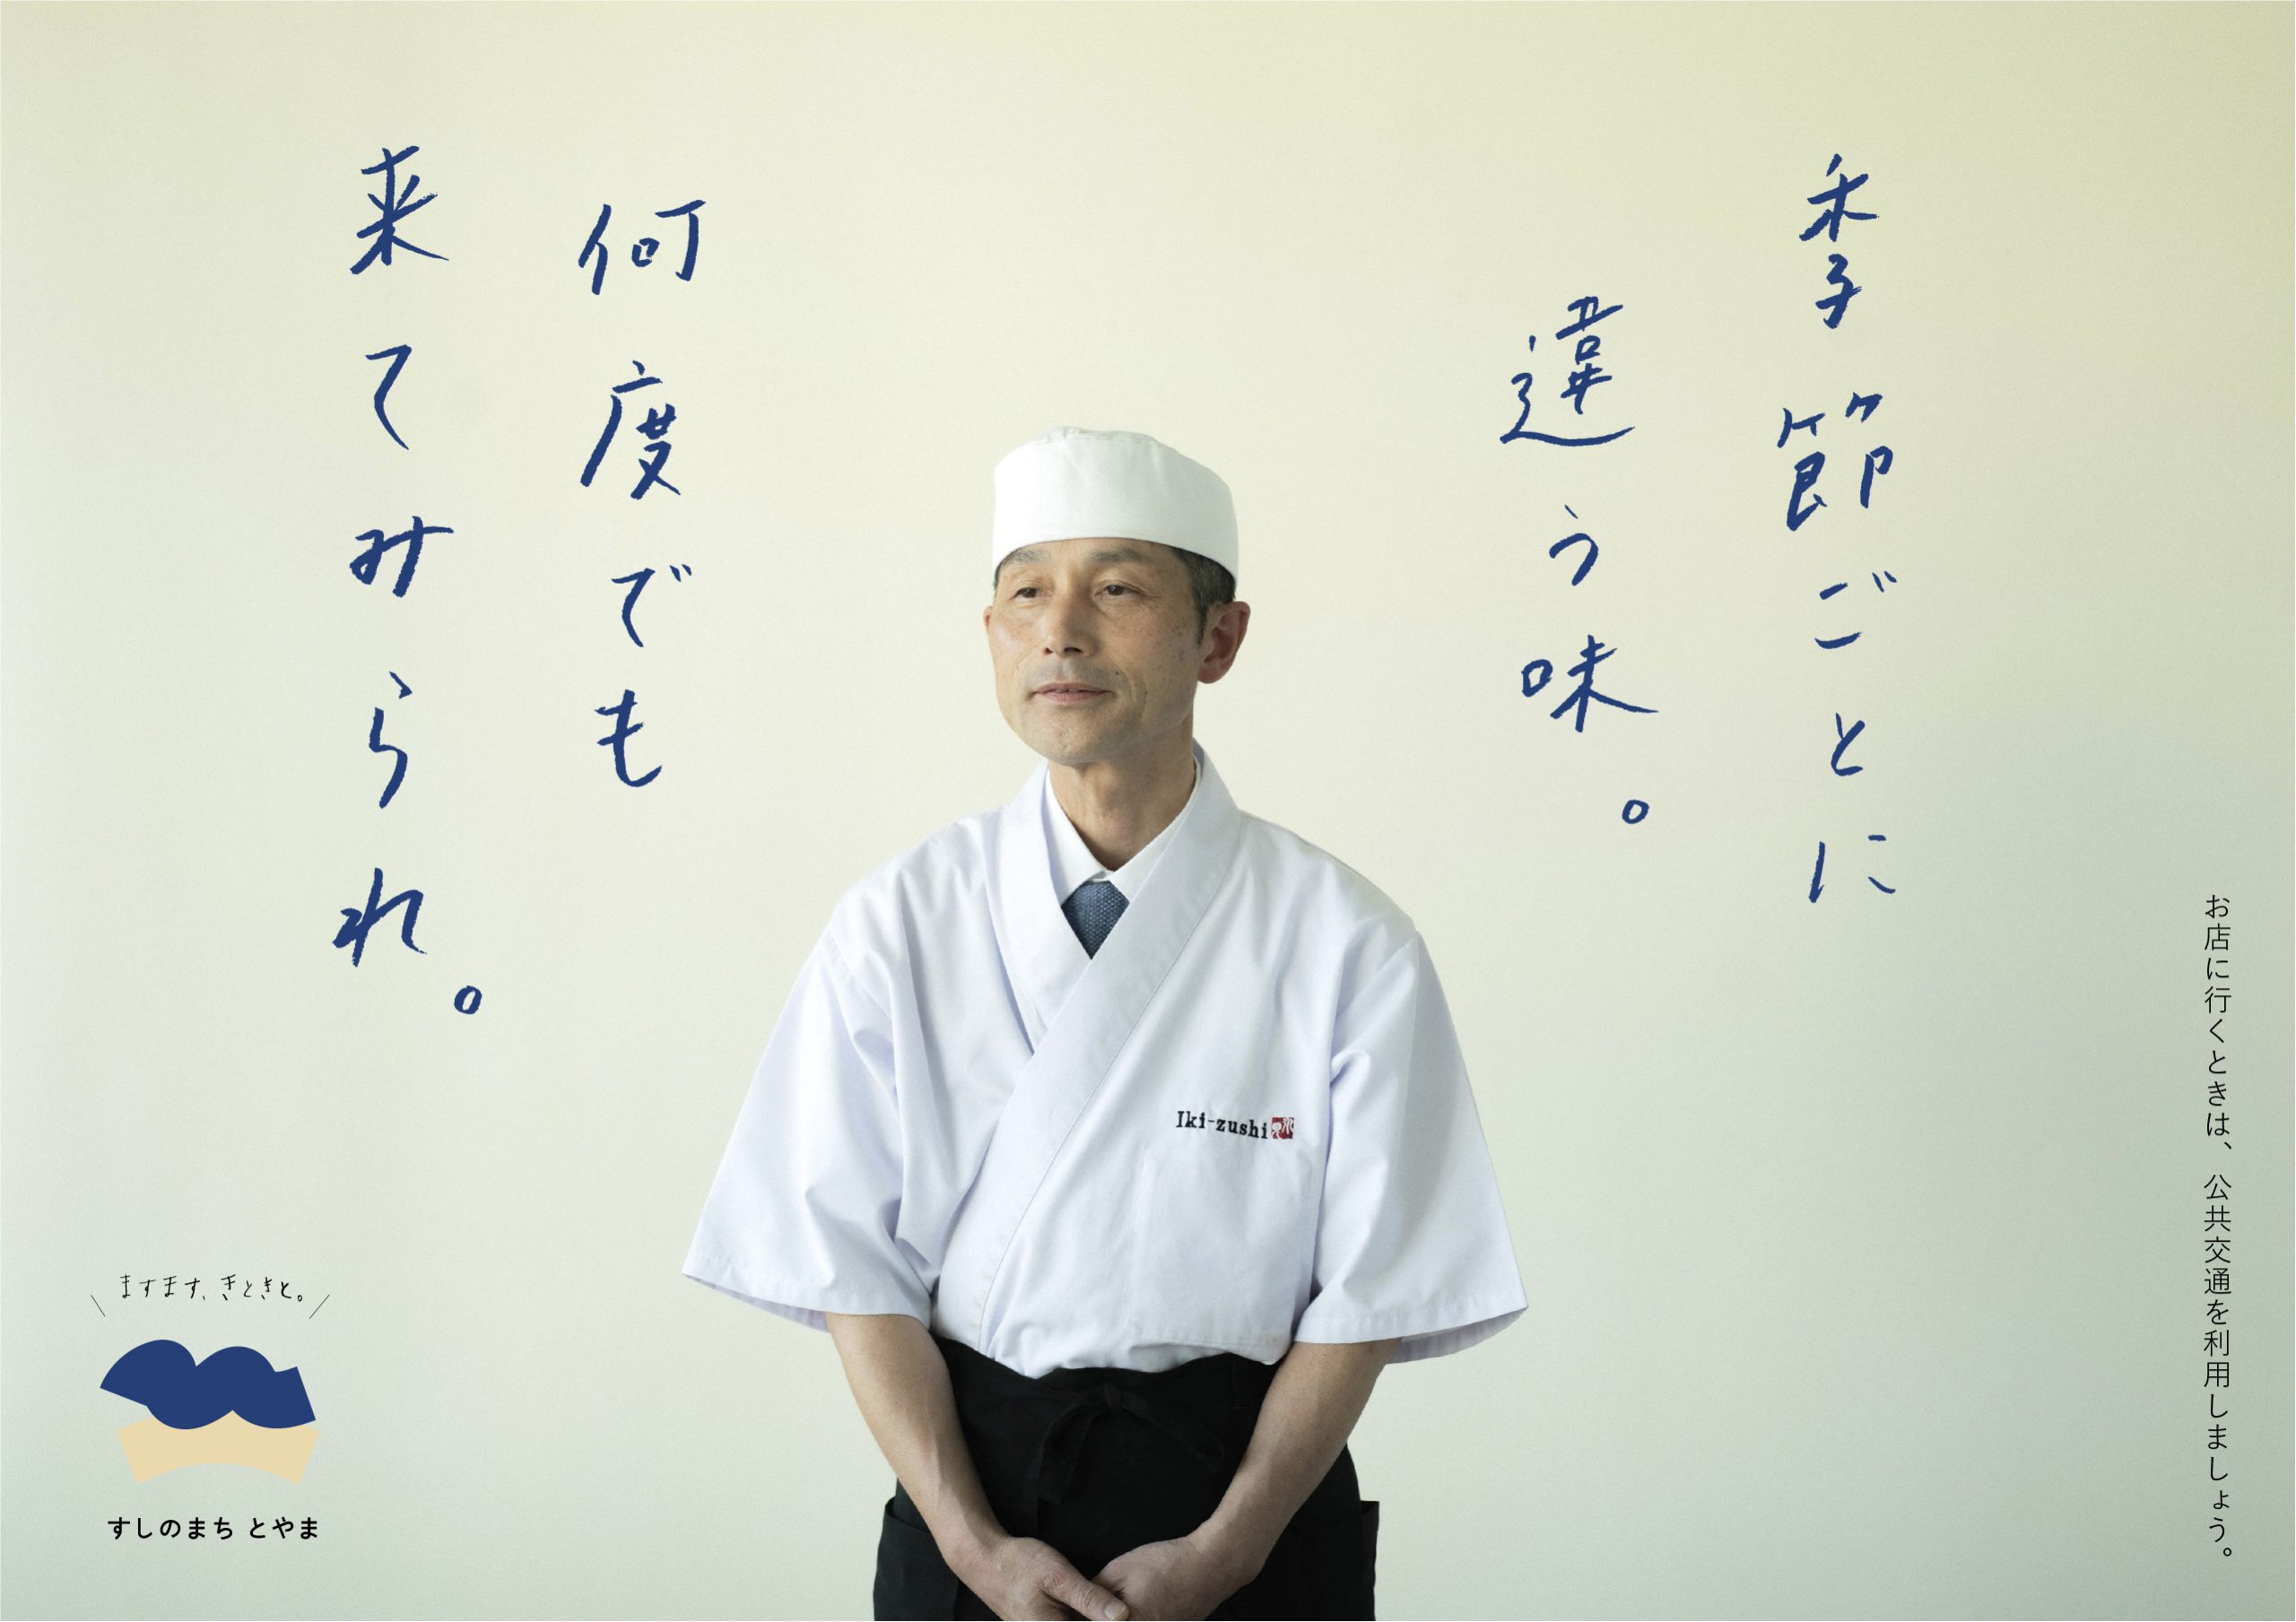 季節ごとに
違う味。
何度でも
来てみられ。
お店に行くときは、公共交通を利用しましょう。
Iki-zushi
ますます、きときと。
すしのまち とやま